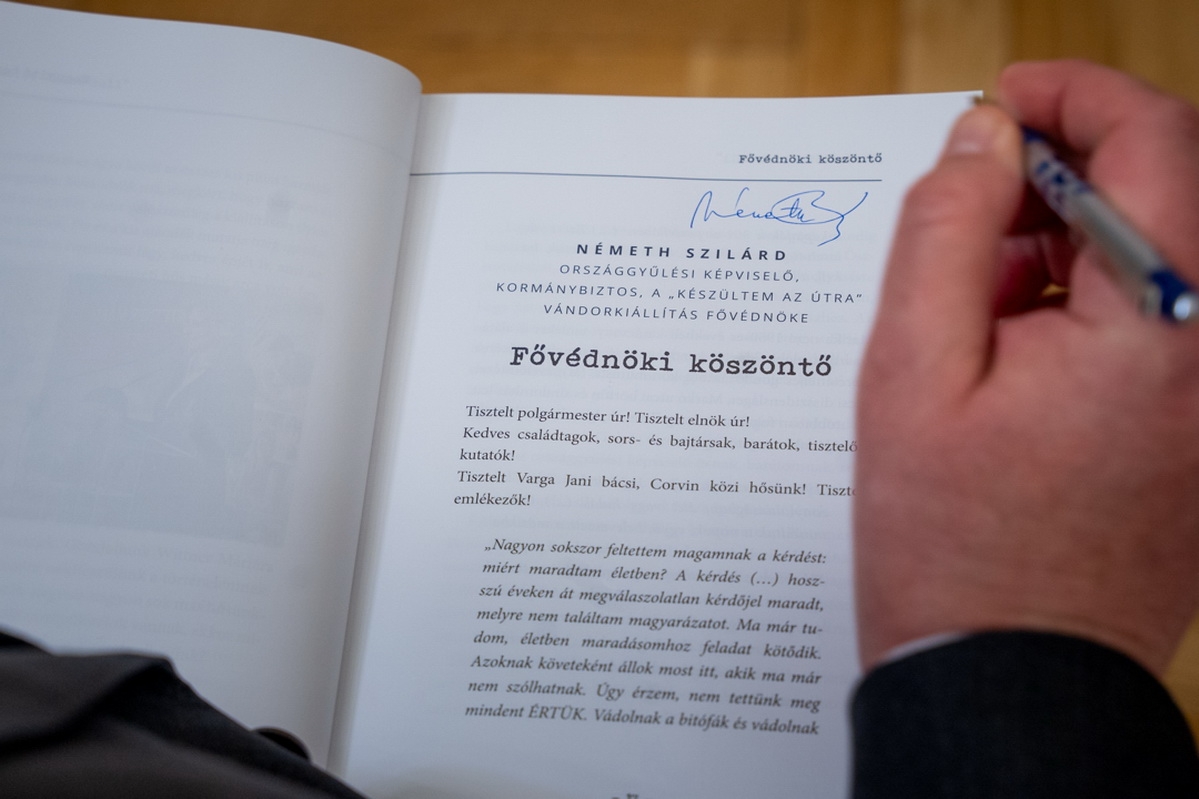 Fővédnöki köszöntő
Németh
NÉMETH SZILÁRD
ORSZÁGGYŰLÉSI KÉPVISELŐ,
KORMÁNYBIZTOS, A „KÉSZÜLTEM AZ ÚTRA”
VÁNDORKIÁLLÍTÁS FŐVÉDNÖKE
Fővédnöki köszöntő
Tisztelt polgármester úr! Tisztelt elnök úr!
Kedves családtagok, sors- és bajtársak, barátok, tisztelő
kutatók!
Tisztelt Varga Jani bácsi, Corvin közi hősünk! Tiszte
emlékezők!
„Nagyon sokszor feltettem magamnak a kérdést:
miért maradtam életben? A kérdés (…) hosz-
szú éveken át megválaszolatlan kérdőjel maradt,
melyre nem találtam magyarázatot. Ma már tu-
dom, életben maradásomhoz feladat kötődik.
Azoknak követeként állok most itt, akik ma már
nem szólhatnak. Úgy érzem, nem tettünk meg
mindent ÉRTÜK. Vádolnak a bitófák és vádolnak